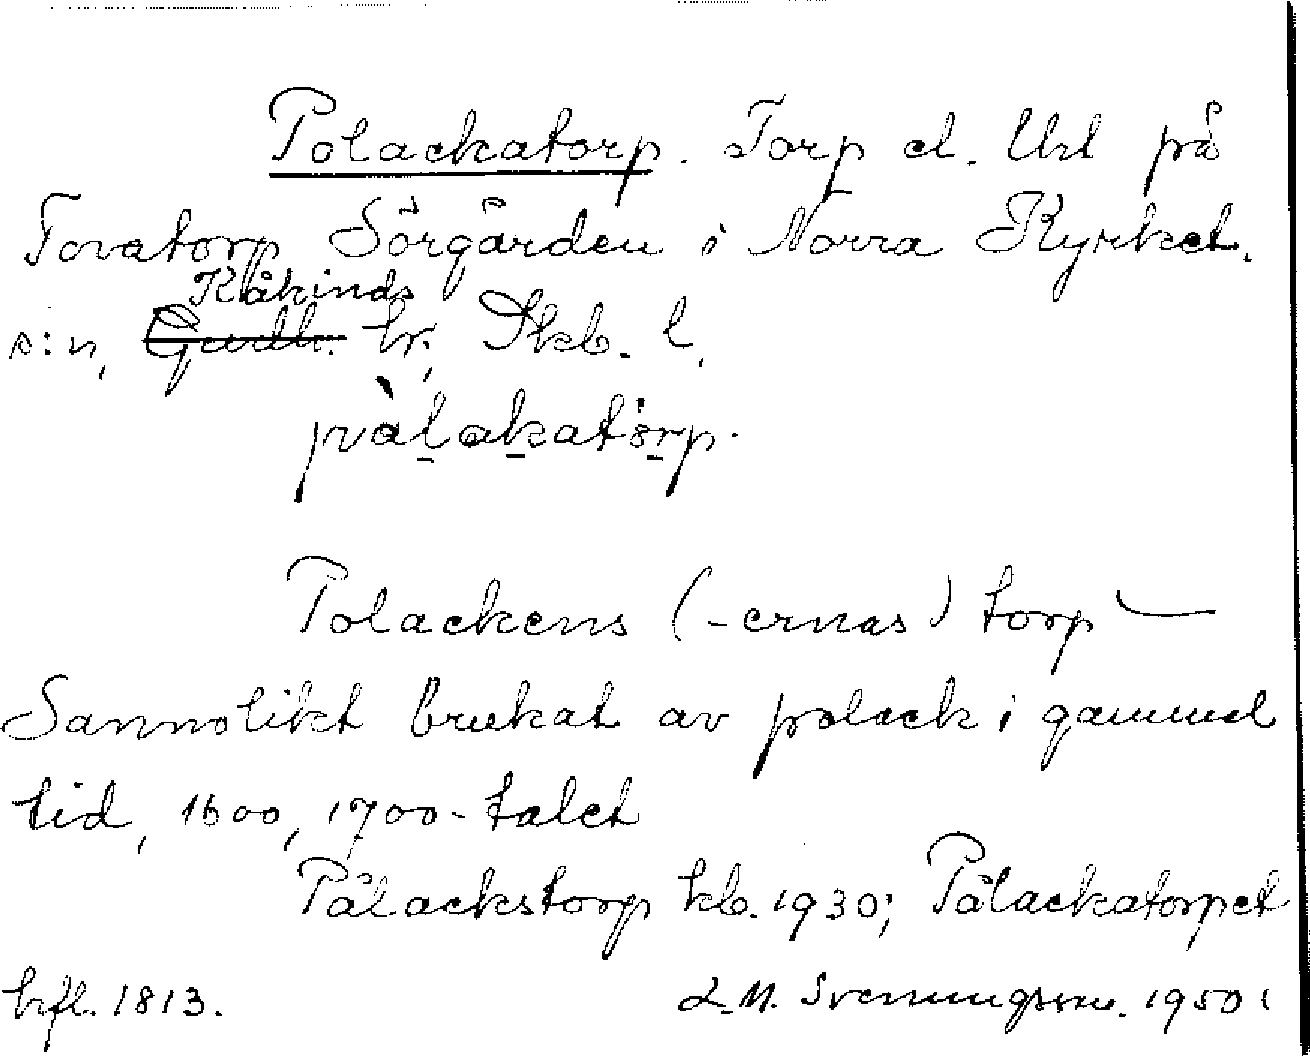 Polackatorp. Torp el. Utt på
Tovatorp Sörgården i Norra Kyrket.
Kåkinds
s:n, Gudh. hr, Skb. l.
pàlakatòrp.
Polackens (-ernas) torp
Sannolikt brukat av polack i gammal
tid, 1600, 1700-talet
Pålackstorp kb. 1930; Pålackatorpet
hfl. 1813.
L.M. Svenungsson. 1950